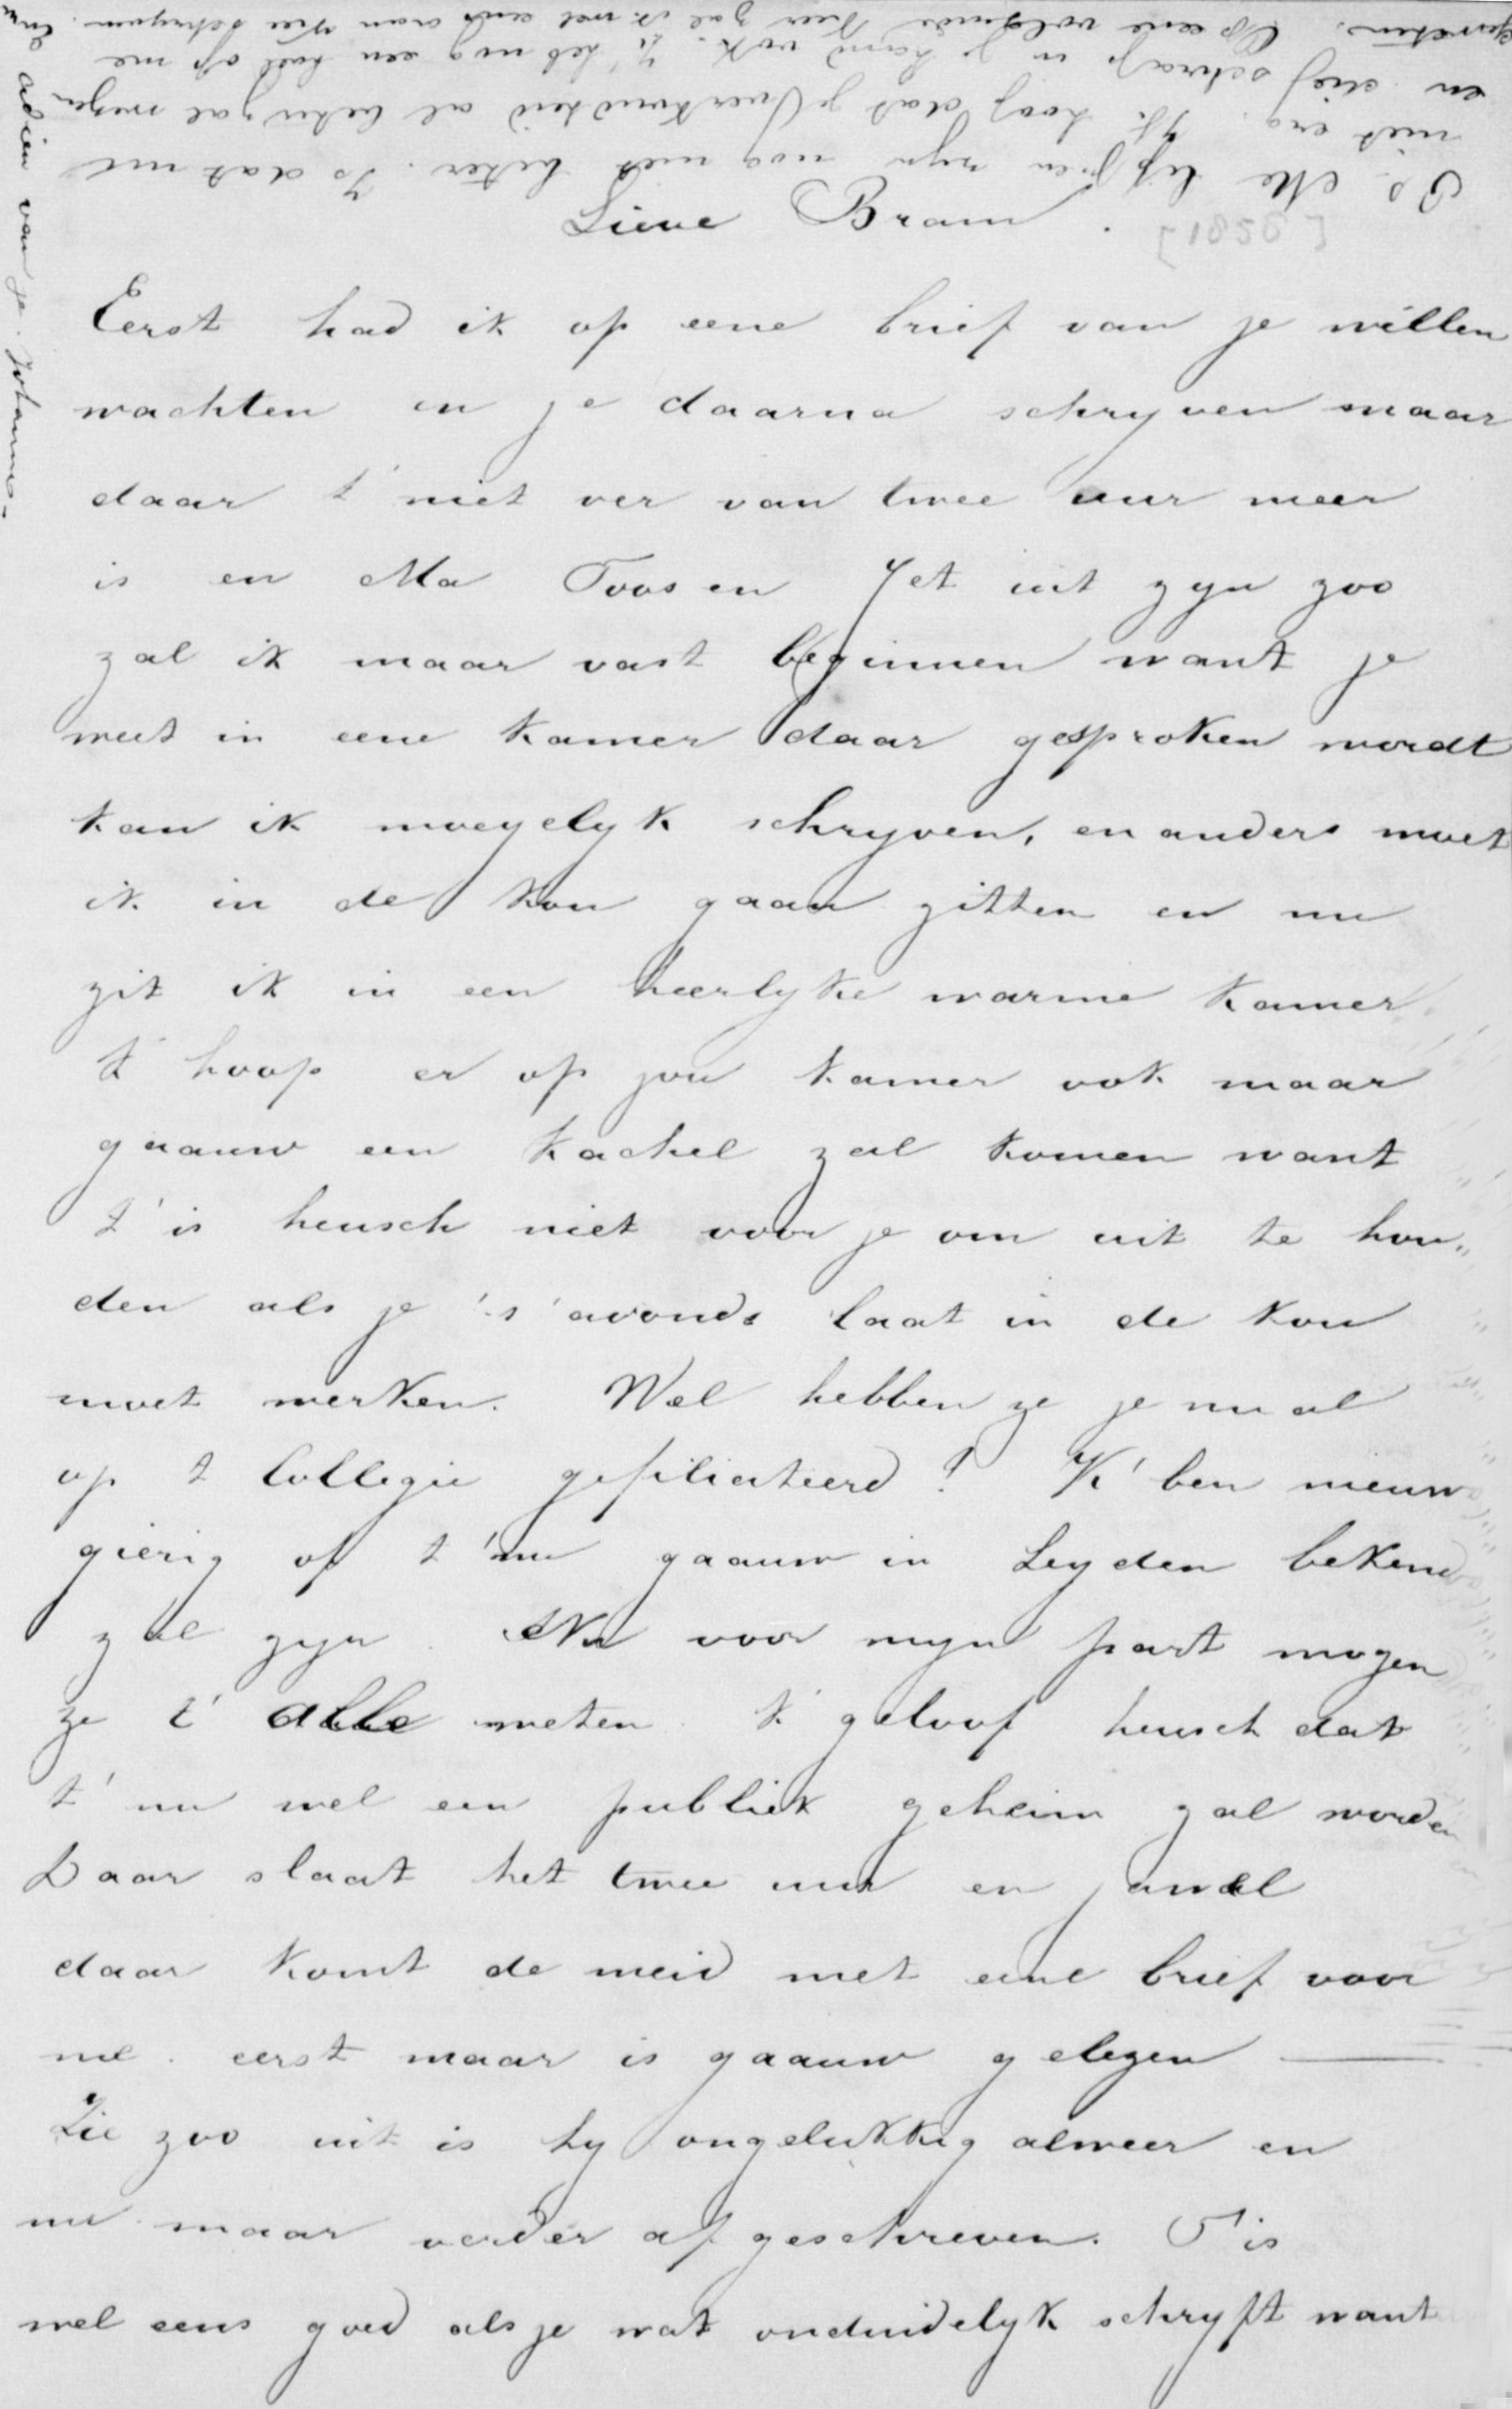 Lieve Bram.
[1850]
Eerst had ik op eene brief van je willen
wachten en je daarna schryven maar
daar t' niet ver van twee uur meer
is en Ma Toos en Jet uit zyn zoo
zal ik maar vast beginnen want je
weet in eene kamer daar gesproken wordt
kan ik moeyelyk schryven, en anders moet
ik in de kou gaan zitten en nu
zit ik in een heerlyke warme kamer.
k' hoop er op jou kamer ook maar
gaauw een kachel zal komen want
t' is heusch niet voor je om uit te hou„
den als je 's avonds laat in de kou
moet werken. Wel hebben ze je nu al
op t Collegie gefiliciteerd? K' ben nieuw
gierig of t' nu gaauw in Leyden bekend
zal zyn. Nu voor myn part mogen
ze t' alle weten. k' geloof heusch dat
t' nu wel een publiek geheim zal worden
Daar slaat het twee uur en jawel
daar komt de meid met eene brief voor
me. eerst maar is gaauw gelezen —
Zie zoo uit is hy ongelukkig alweer en
nu maar verder af geschreven. T' is
wel eens goed als je wat onduidelyk schryft want
Ps. Me lippen zyn nog niet beter. Is dat nu
niet erg. Ik hoop dat je verkoudheid al beter zal wezen
en die schrap in je hand ook. K' heb nog een heel op me
geweten. Op eene volgende keer zal ik wel eens aan Vee schryven. En nu
adieu van je Johanna.